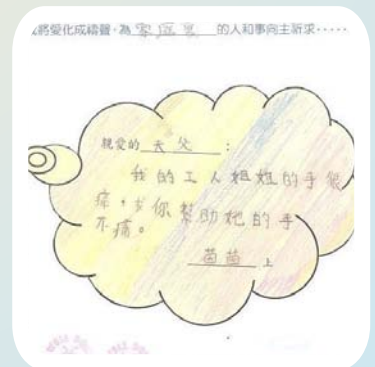 將愛化成禱聲，為 家庭裏 的人和事向主祈求……
親愛的 天父 ：
我的工人姐姐的手很
痛，求你幫助她的手
不痛。
茵茵 上